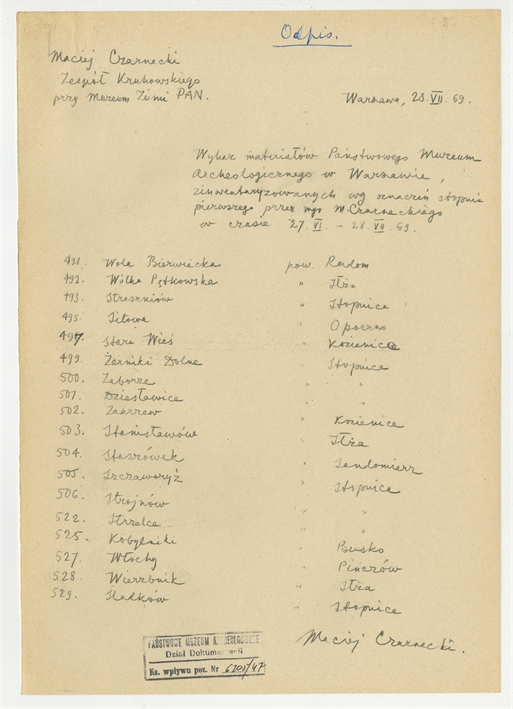 Odpis.
Maciej Czarnecki
Zespół Krukowskiego
przy Muzeum Ziemi PAN.
Warszawa, 28.VII.69.
Wykaz materiałów Państwowego Muzeum
Archeologicznego w Warszawie,
zinwentaryzowanych wg oznaczeń stopnia
pierwszego przez mgr M. Czarneckiego
w czasie 27.VI. – 28.VII.69.
491. Wola Bierwiecka pow. Radom
492. Wólka Pętkowska " Iłża
493. Streszniów " Stopnica
495. Sitowa " Opoczno
497. Stara Wieś " Kozienice
499. Żerniki Dolne " Stopnica
500. Zaborze " "
501. Dziesławice " "
502. Zakrzew " Kozienice
503. Stanisławów " Iłża
504. Staszówek " Sandomierz
505. Szczaworyż " Stopnica
506. Strojnów " "
522. Strzelce " "
525. Kobylniki " Busko
527. Włochy " Pińczów
528. Wierzbnik " Iłża
529. Sladków " Stopnica
Maciej Czarnecki.
PAŃSTWOWE MUZEUM ARCHEOLOGICZNE
Dział Dokumentacji
Ks. wpływu poz. Nr 6200/47